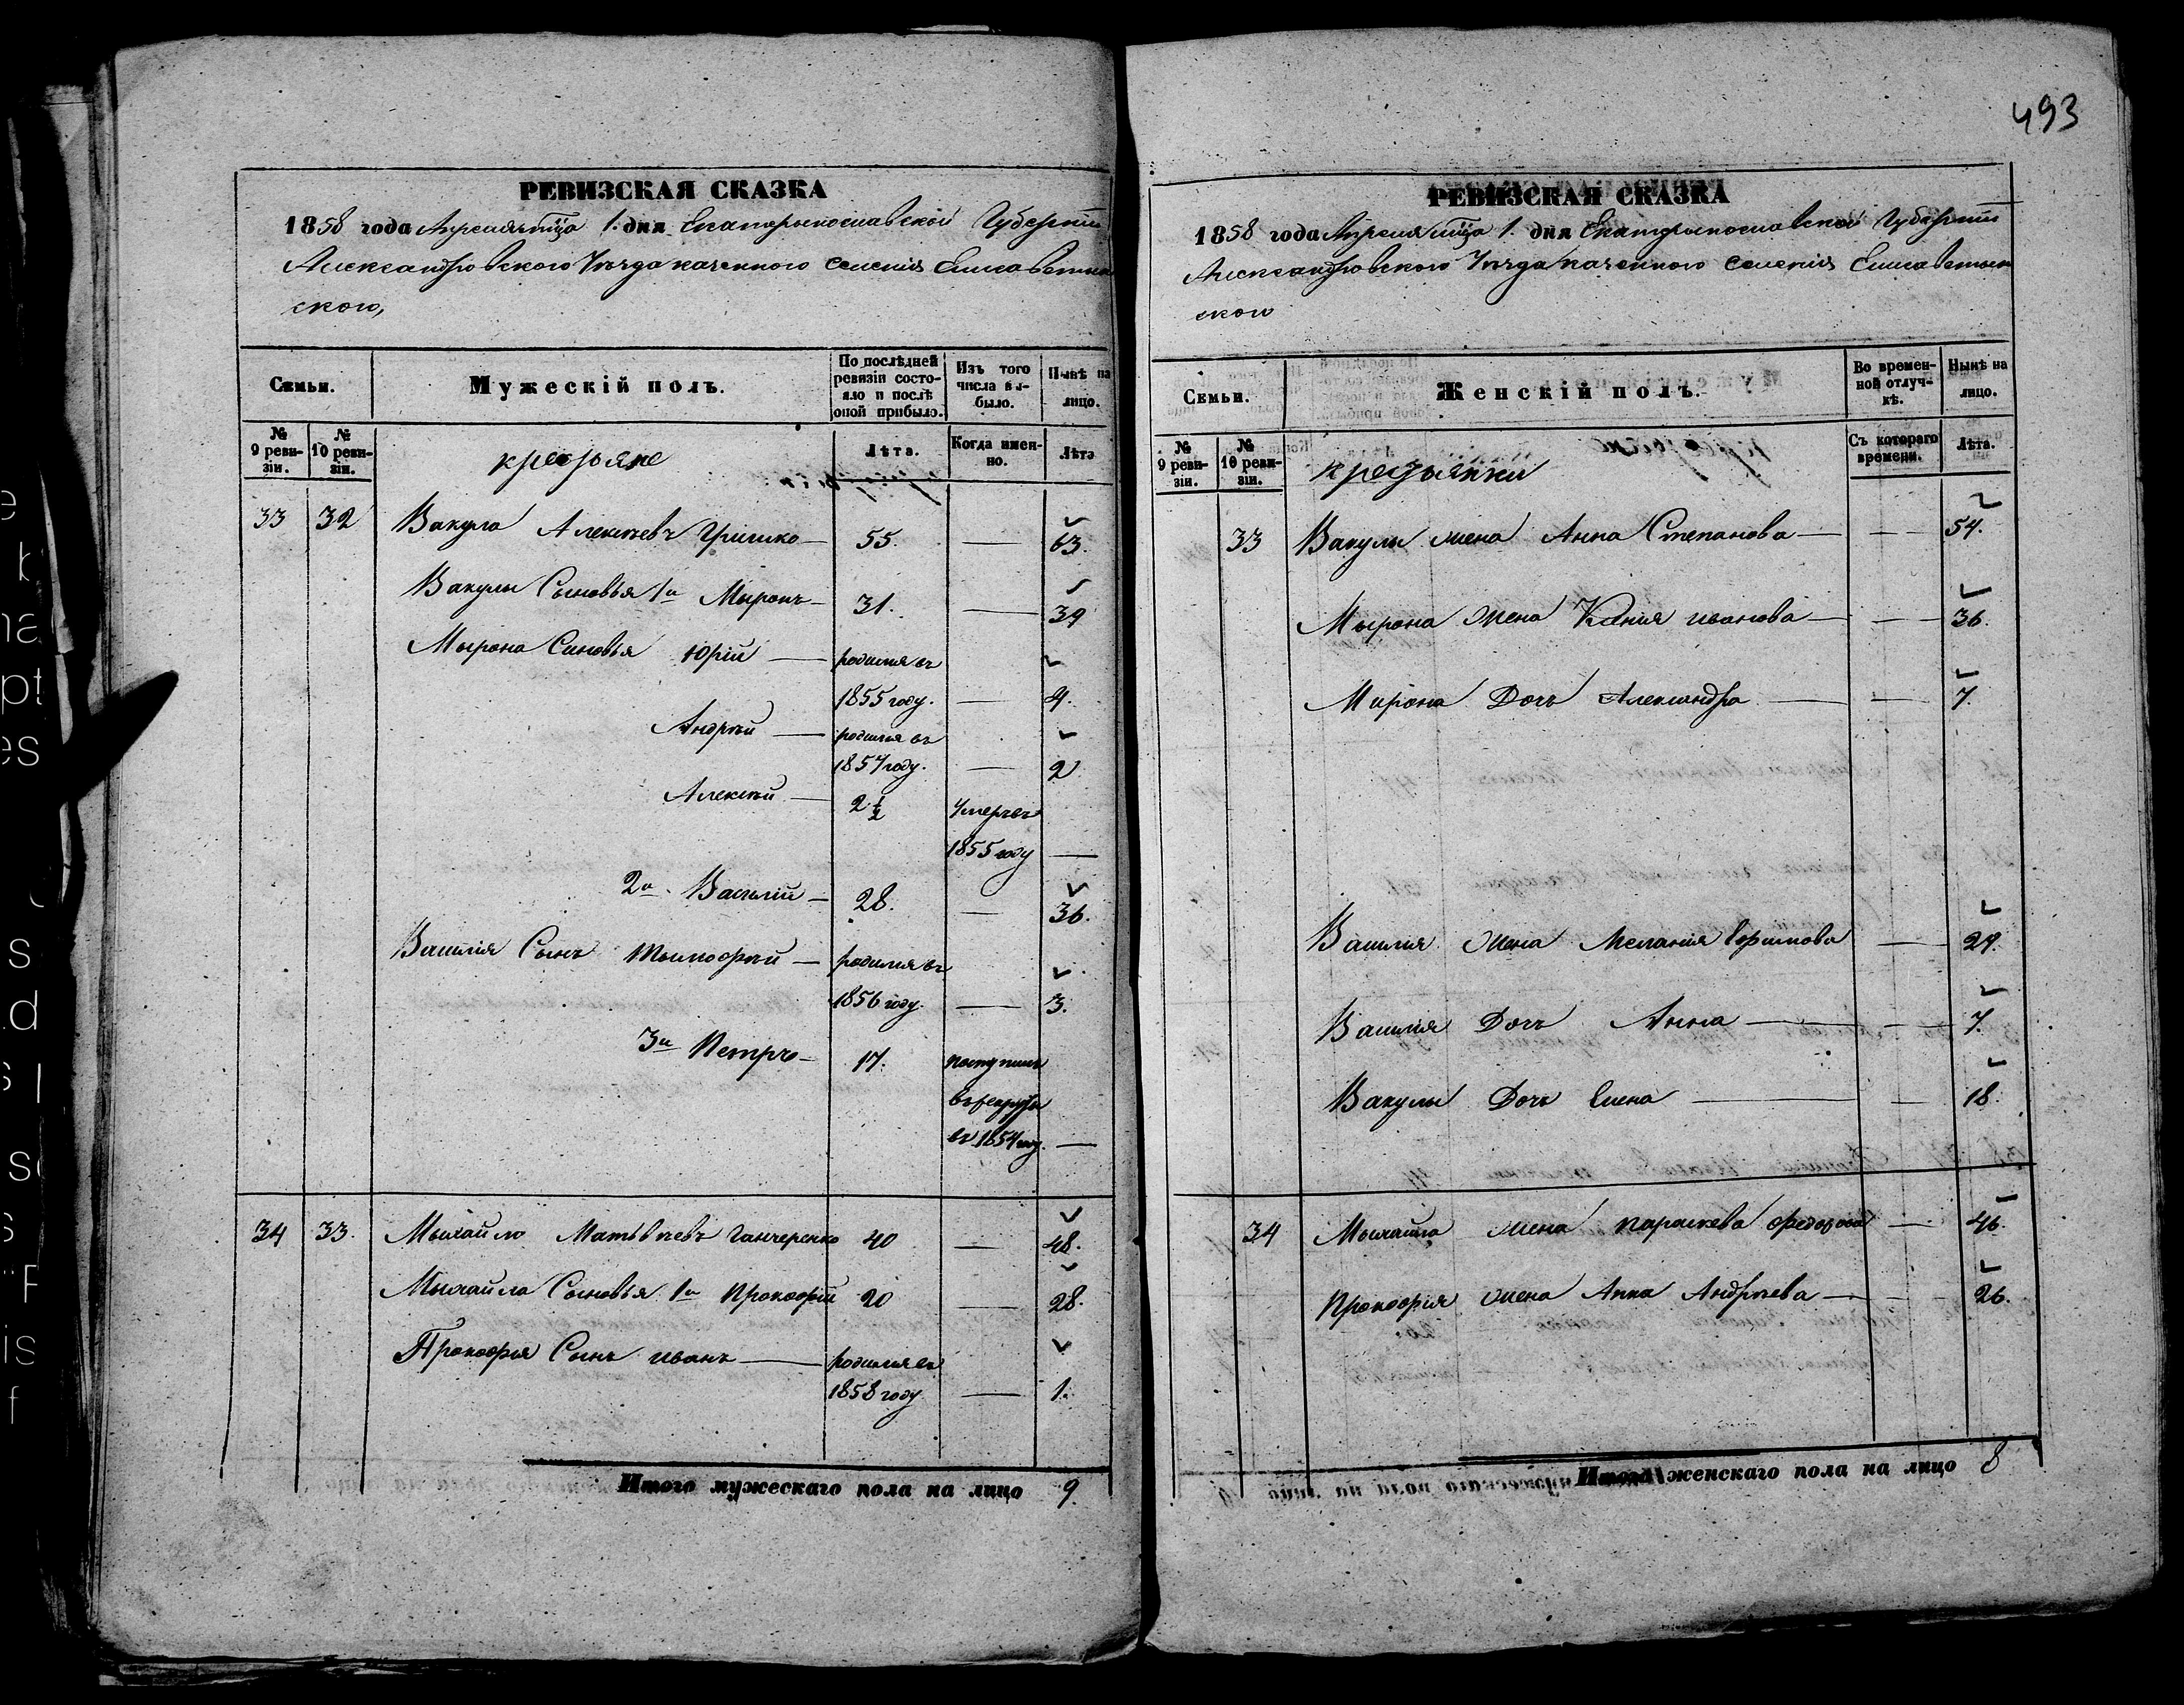 493
РЕВИЗСКАЯ СКАЗКА
1858 года Апреля м̃ца 1. дня Екатерынославской Губернии
Александровского Уезда казенного селения Елисаветин
ского,
Семьи.
Мужескій полъ.
По послѣдней ревизіи состояло и послѣ оной прибыло.
Изъ того числа выбыло.
Нынѣ на лицо.
№ 9 ревизіи.
№ 10 ревизіи.
крестьяне
Лѣта.
Когда именно.
Лѣта
33 32 Вакула Алексѣевъ Гришко — 55. — 63.
Вакулы Сыновья 1й Мыронъ — 31. — 39
Мырона Синовья Юрій — родился въ
1855 году. — 4.
Андрѣй — родился въ
1857 году. — 2
Алексѣй — 2 1/2 Умеръ въ
1855 году —
2й. Василій — 28. — 36.
Василія Сынъ Тымофѣй — родился въ
1856 году. — 3.
3й Петръ — 17. поступилъ
въ рекруты
въ 1854 году. —
34 33. Мыхайло Матвѣевъ Ганчеренко 40 — 48.
Мыхайла Сыновья 1й Прокофій 20 — 28.
Прокофія Сынъ иванъ — родился въ
1858 году — 1.
Итого мужескаго пола на лицо 9.
РЕВИЗСКАЯ СКАЗКА
1858 года Апреля м̃ца 1. дня Екатерынославской Губернии
Александровского Уезда казенного селения Елисаветин
ского
Семьи.
Женскій полъ.
Во временной отлучкѣ.
Нынѣ на лицо.
№ 9 ревизіи.
№ 10 ревизіи.
крестьянки
Съ котораго времени.
Лѣта.
33 Вакулы жена Анна Степанова — — 54.
Мырона жена Ксения иванова — — 36.
Мирона Дочь Александра — — 7.
Василия жена Мелания Ефимова — 29.
Василия Дочь Анна — — 7.
Вакулы Дочь Елена — — 18.
34 Мыхайла жена параскева федорова — 46.
Прокофия жена Анна Андрѣева — — 26.
Итого женскаго пола на лицо 8